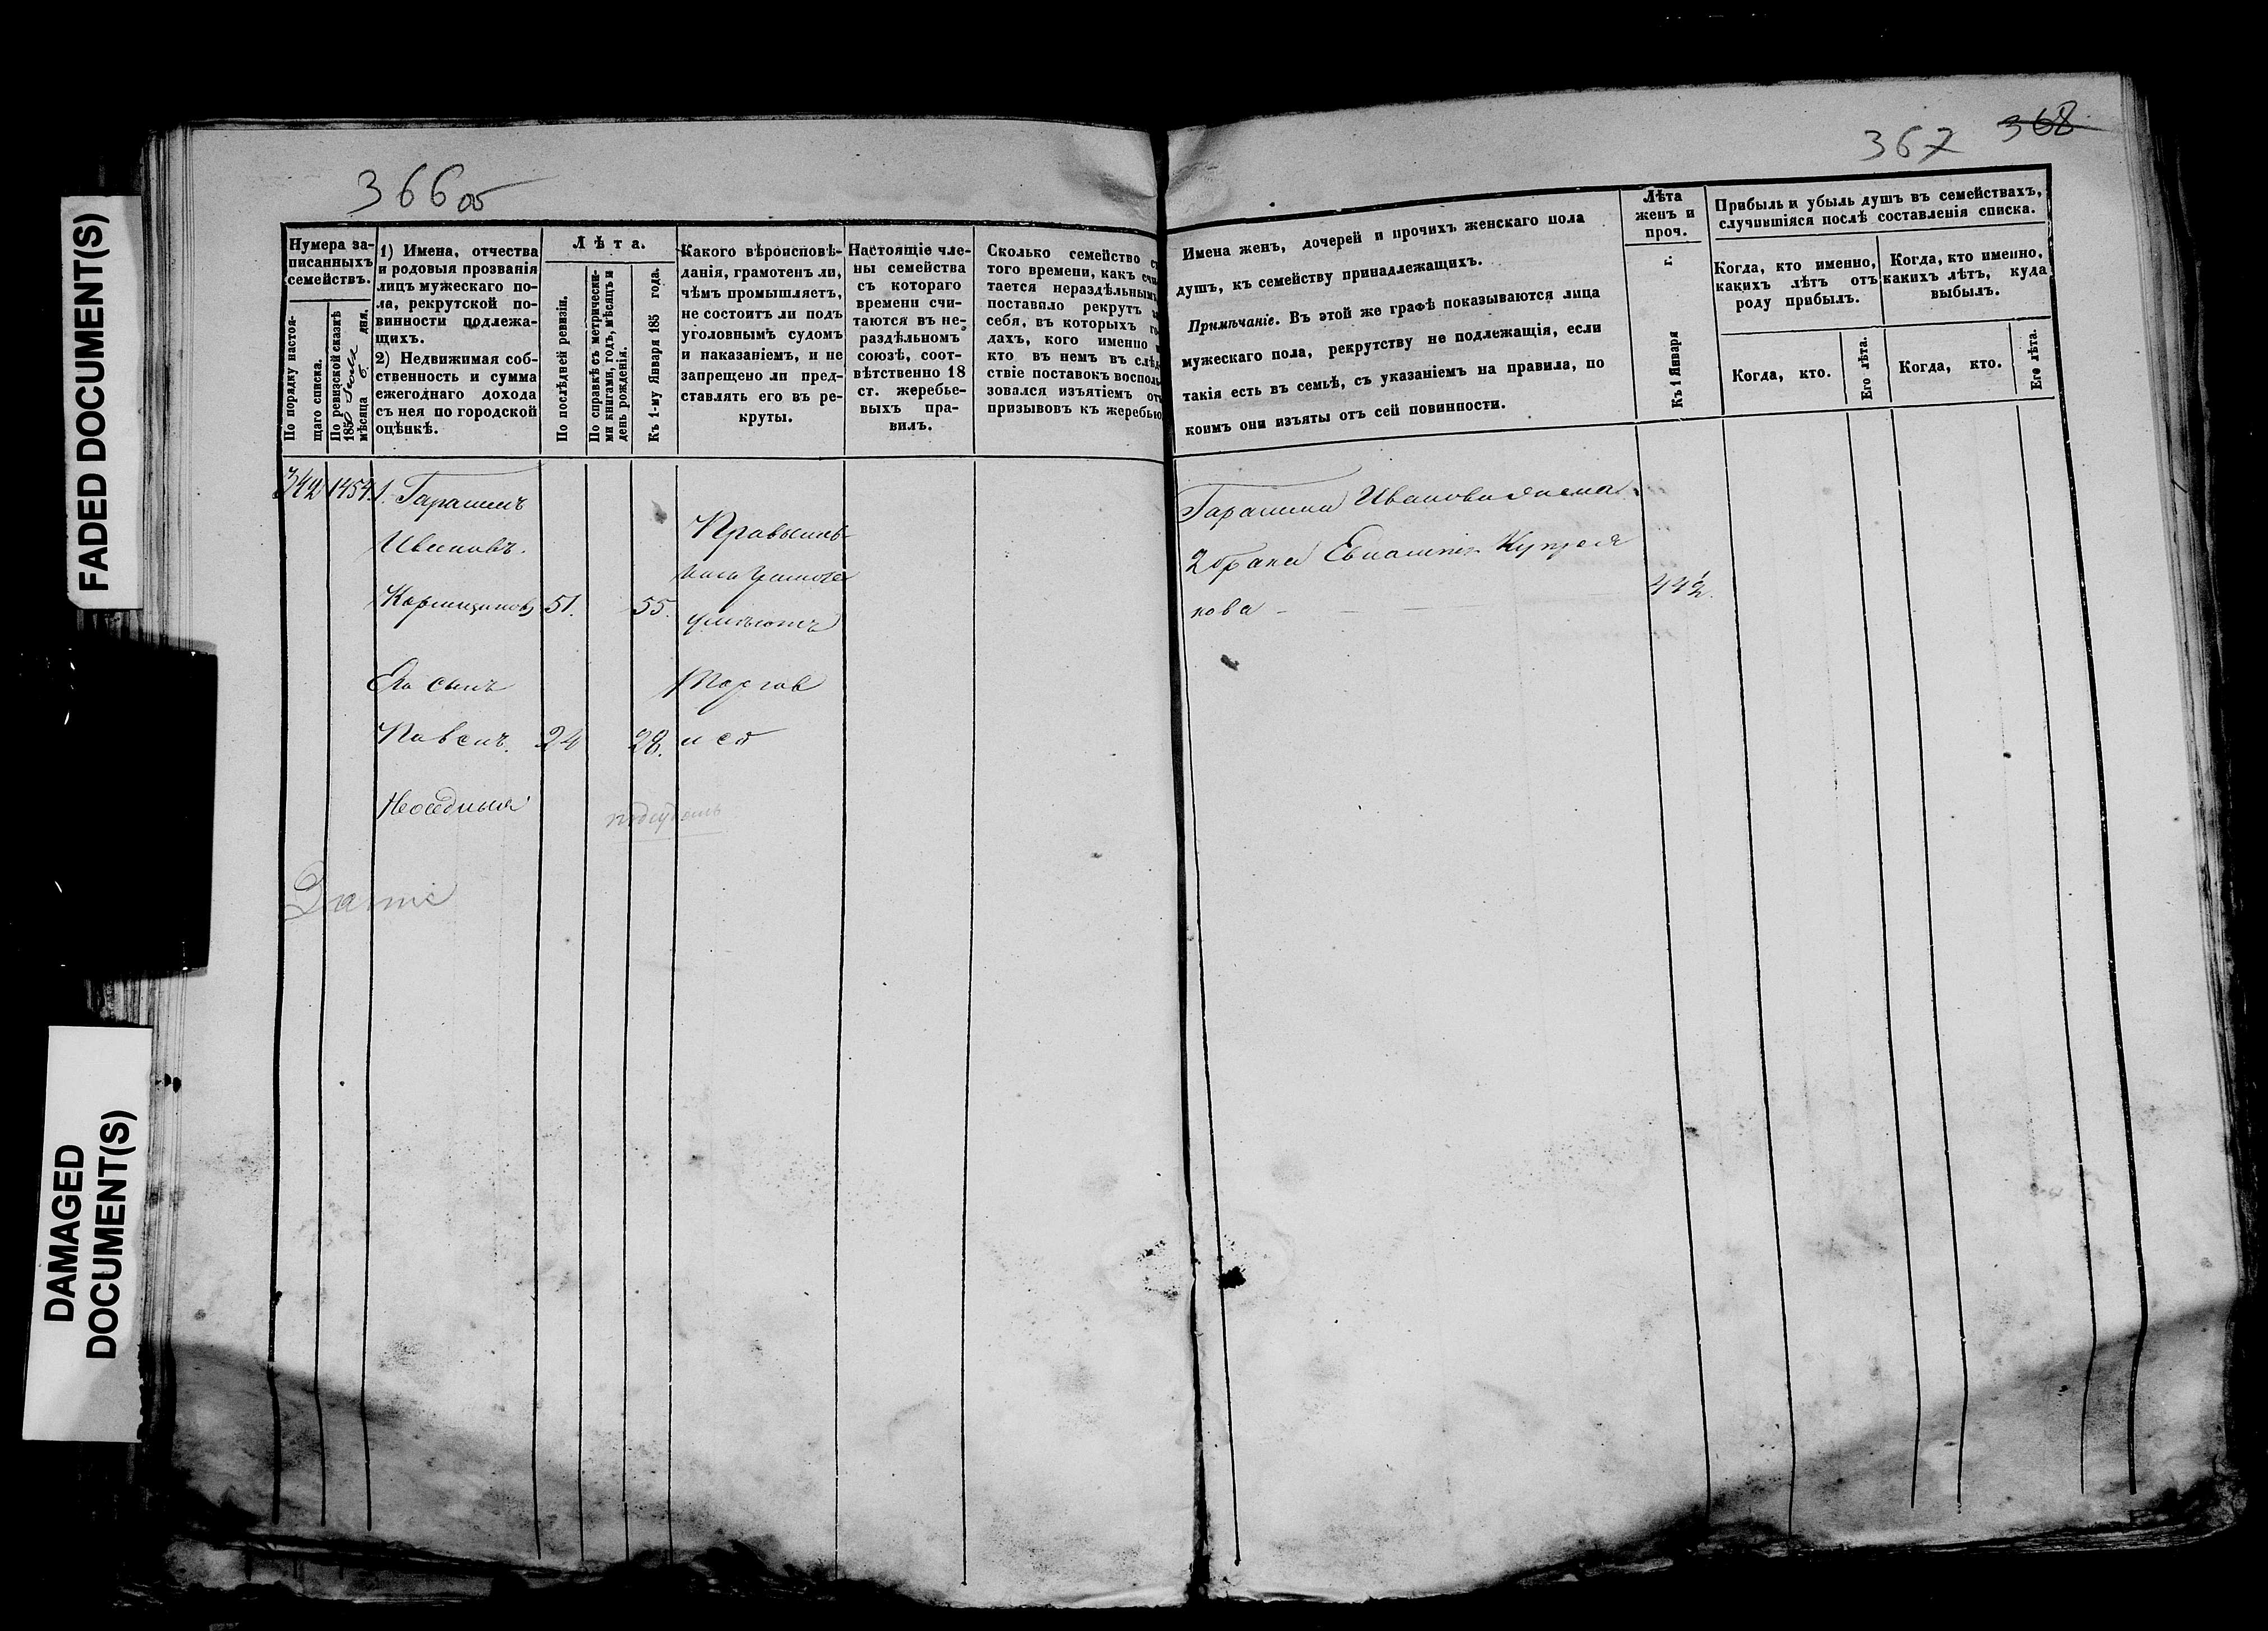 FADED DOCUMENT(S)
DAMAGED
DOCUMENT(S)
366 об
Нумера за-
писанныхъ
семействъ.
По порядку настоя-
щаго списка.
По ревизской сказкѣ
185
мѣсяца 6. дня.
1) Имена, отчества
и родовыя прозванія
лицъ мужескаго по-
ла, рекрутской по-
винности подлежа-
щихъ.
2) Недвижимая соб-
ственность и сумма
ежегоднаго дохода
съ нея по городской
оцѣнкѣ.
Лѣта.
По послѣдней ревизіи.
По справкѣ съ метрически-
ми книгами, годъ, мѣсяцъ и
день рожденія.
Къ 1-му Января 185 года.
Какого вѣроисповѣ-
данія, грамотенъ ли,
чѣмъ промышляетъ,
не состоитъ ли подъ
уголовнымъ судомъ
и наказаніемъ, и не
запрещено ли пред-
ставлять его въ ре-
круты.
Настоящіе чле-
ны семейства
съ котораго
времени счи-
таются въ не-
раздѣльномъ
союзѣ, соот-
вѣтственно 18
ст. жеребье-
выхъ пра-
вилъ.
Сколько семейство с
того времени, какъ счи
тается нераздѣльнымъ
поставило рекрутъ за
себя, въ которыхъ го
дахъ, кого именно и
кто въ немъ въ слѣд
ствіе поставокъ восполь
зовался изъятіемъ отъ
призывовъ къ жеребью
342
1454
1. Гарасимъ
Ивановъ.
51.
55.
Его сынъ
Павелъ.
24
28.
Неосѣдлыя
Православ
грамоте
умѣютъ
Торгов
367
368
Имена женъ, дочерей и прочихъ женскаго пола
душъ, къ семейству принадлежащихъ.
Примѣчаніе. Въ этой же графѣ показываются лица
мужескаго пола, рекрутству не подлежащія, если
такія есть въ семьѣ, съ указаніемъ на правила, по
коимъ они изъяты отъ сей повинности.
Лѣта
женъ и
проч.
Къ 1 Января г.
Прибыль и убыль душъ въ семействахъ,
случившіяся послѣ составленія списка.
Когда, кто именно,
какихъ лѣтъ отъ
роду прибылъ.
Когда, кто именно,
какихъ лѣтъ, куда
выбылъ.
Когда, кто.
Его лѣта.
Когда, кто.
Его лѣта.
Гарасима Иванова жена
2 брака Купрея
нова
44½.